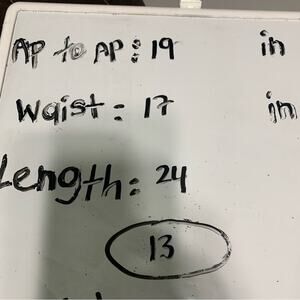 Ap to AP: 19 in
Waist: 17 in
Length: 24
13